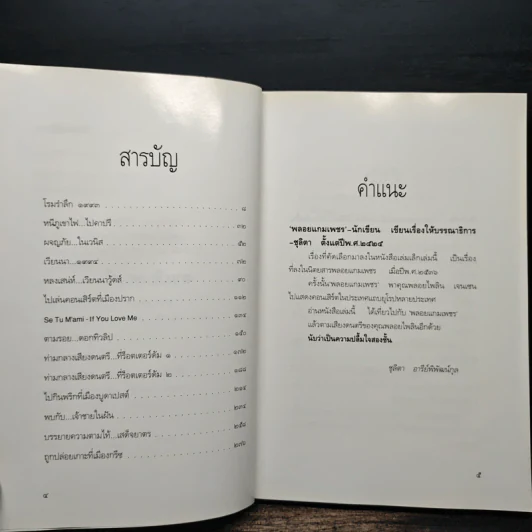 สารบัญ
โรมรำลึก ๑๙๙๓ ๘
หนีภูเขาไฟ...ไปคาปรี ๓๒
ผจญภัย...ในเวนิส ๕๒
เวียนนา...๑๙๙๔ ๗๒
หลงเสน่ห์...เวียนนาวู้ดส์ ๙๐
ไปเล่นคอนเสิร์ตที่เมืองปราก ๑๑๒
Se Tu M'ami - If You Love Me ๑๓๔
ตามรอย...ดอกทิวลิป ๑๕๐
ท่ามกลางเสียงดนตรี...ที่ร็อตเตอร์ดัม ๑ ๑๗๒
ท่ามกลางเสียงดนตรี...ที่ร็อตเตอร์ดัม ๒ ๑๙๔
ไปกินพริกที่เมืองบูดาเปสต์ ๒๑๔
พบกับ...เจ้าชายในฝัน ๒๓๔
บรรยายความตามไท้...เสด็จยาตร ๒๕๘
ถูกปล่อยเกาะที่เมืองกรีซ ๒๗๖
๔
คำแนะ
'พลอยแกมเพชร'-นักเขียน เขียนเรื่องให้บรรณาธิการ
-ชุลิตา ตั้งแต่ปีพ.ศ.๒๕๒๔
เรื่องที่คัดเลือกมาลงในหนังสือเล่มเล็กเล่มนี้ เป็นเรื่อง
ที่ลงในนิตยสารพลอยแกมเพชร เมื่อปีพ.ศ.๒๕๓๖
ครั้งนั้น'พลอยแกมเพชร' พาคุณพลอยไพลิน เจนเซน
ไปแสดงคอนเสิร์ตในประเทศแถบยุโรปหลายประเทศ
อ่านหนังสือเล่มนี้ ได้เที่ยวไปกับ 'พลอยแกมเพชร'
แล้วตามเสียงดนตรีของคุณพลอยไพลินอีกด้วย
นับว่าเป็นความปลื้มใจสองชั้น
ชุลิตา อารีย์พิพัฒน์กุล
๕